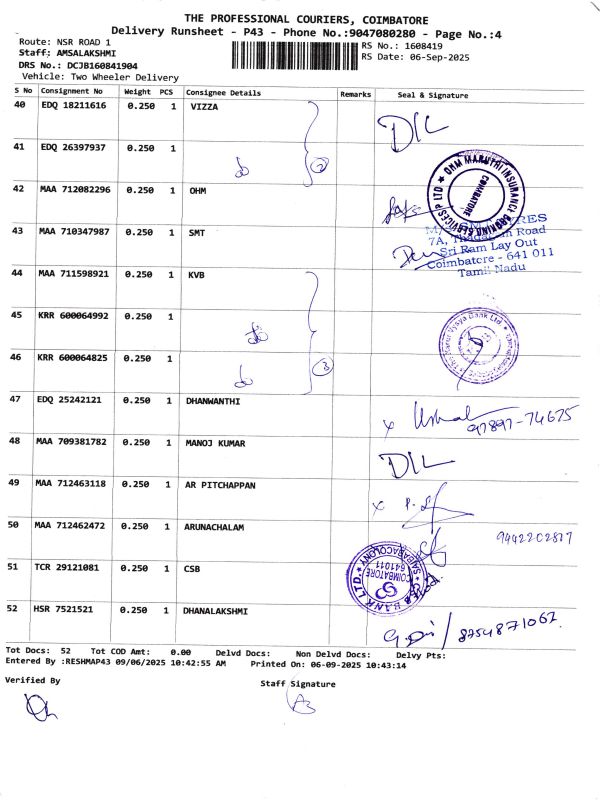 THE PROFESSIONAL COURIERS, COIMBATORE
Delivery Runsheet - P43 - Phone No.:9047080280 - Page No.:4
Route: NSR ROAD 1
RS No.: 1608419
Staff: AMSALAKSHMI
RS Date: 06-Sep-2025
DRS No.: DCJB160841904
Vehicle: Two Wheeler Delivery
S No Consignment No Weight PCS Consignee Details Remarks Seal & Signature
40 EDQ 18211616 0.250 1 VIZZA
D/L
41 EDQ 26397937 0.250 1
do 2
42 MAA 712082296 0.250 1 OHM
OHM MARUTHI INSURANCE BROKING SERVICES P LTD COIMBATORE
43 MAA 710347987 0.250 1 SMT
7A, Road
Sri Ram Lay Out
Coimbatore - 641 011
Tamil Nadu
44 MAA 711598921 0.250 1 KVB
45 KRR 600064992 0.250 1
do
Vysya Bank Ltd
46 KRR 600064825 0.250 1
do 3
47 EDQ 25242121 0.250 1 DHANWANTHI
x 97897-74675
48 MAA 709381782 0.250 1 MANOJ KUMAR
D/L
49 MAA 712463118 0.250 1 AR PITCHAPPAN
x
50 MAA 712462472 0.250 1 ARUNACHALAM
9442202817
51 TCR 29121081 0.250 1 CSB
CSB BANK LTD. SAIBABACOLONY COIMBATORE 641011
52 HSR 7521521 0.250 1 DHANALAKSHMI
8754871067
Tot Docs: 52 Tot COD Amt: 0.00 Delvd Docs: Non Delvd Docs: Delvy Pts:
Entered By :RESHMAP43 09/06/2025 10:42:55 AM Printed On: 06-09-2025 10:43:14
Verified By
Staff Signature